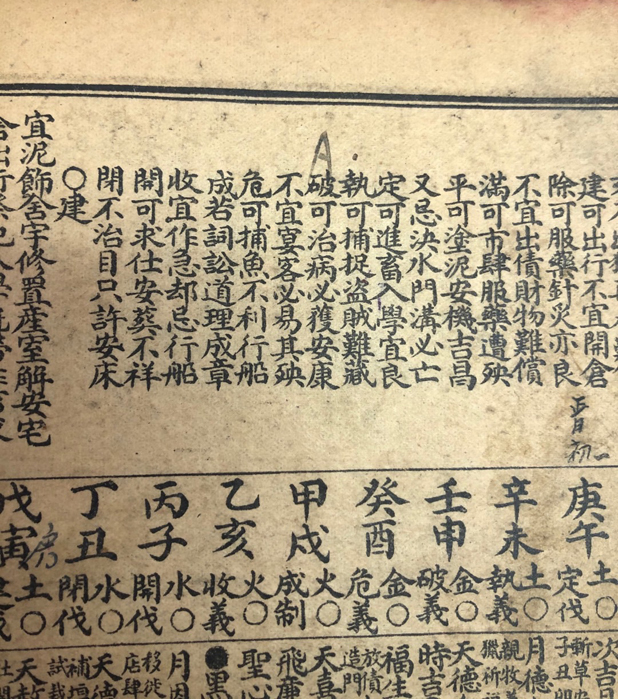 建可出行不宜開倉
除可服藥針灸亦良
不宜出債財物難償
滿可市肆服藥遭殃
平可塗泥安機吉昌
又忌決水門溝必亡
定可進畜入學宜良
執可捕捉盜賊難藏
破可治病必獲安康
不宜冥客必易其殃
危可捕魚不利行船
成若詞訟道理成章
收宜作急却忌行船
開可求仕安葬不祥
閉不治目只許安床
〇建
宜泥飾舍宇修置產室解安宅
A
初一
庚午
土〇
定伐
辛未
土〇
執義
壬申
金〇
破義
癸酉
金〇
危義
甲戌
火〇
成制
乙亥
火〇
收義
丙子
水〇
開伐
丁丑
水〇
閉伐
戊寅
土〇
次吉
子丑
月德
天德
時吉
福生
放債
造門
天喜
飛廉
聖心
●黑
移徙
店肆